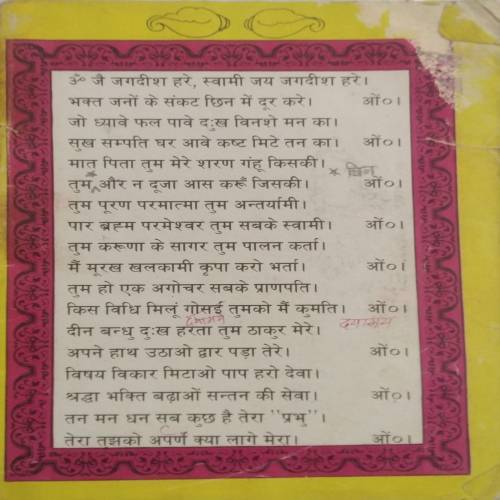 ॐ जै जगदीश हरे, स्वामी जय जगदीश हरे।
भक्त जनों के संकट छिन में दूर करे। ओं०।
जो ध्यावे फल पावे दुःख विनशे मन का।
सुख सम्पति घर आवे कष्ट मिटे तन का। ओं०।
मात पिता तुम मेरे शरण गंहू किसकी।
* बिन
तुम और न दूजा आस करूँ जिसकी। ओं०।
तुम पूरण परमात्मा तुम अन्तर्यामी।
पार ब्रह्म परमेश्वर तुम सबके स्वामी। ओं०।
तुम करूणा के सागर तुम पालन कर्ता।
मैं मूरख खलकामी कृपा करो भर्ता। ओं०।
तुम हो एक अगोचर सबके प्राणपति।
किस विधि मिलूं गोसई तुमको मैं कुमति। ओं०।
दयामय दयामय
दीन बन्धु दुःख हरता तुम ठाकुर मेरे।
अपने हाथ उठाओ द्वार पड़ा तेरे। ओं०।
विषय विकार मिटाओ पाप हरो देवा।
श्रद्धा भक्ति बढ़ाओं सन्तन की सेवा। ओं०।
तन मन धन सब कुछ है तेरा "प्रभु"।
तेरा तुझको अर्पण क्या लागे मेरा। ओं०।